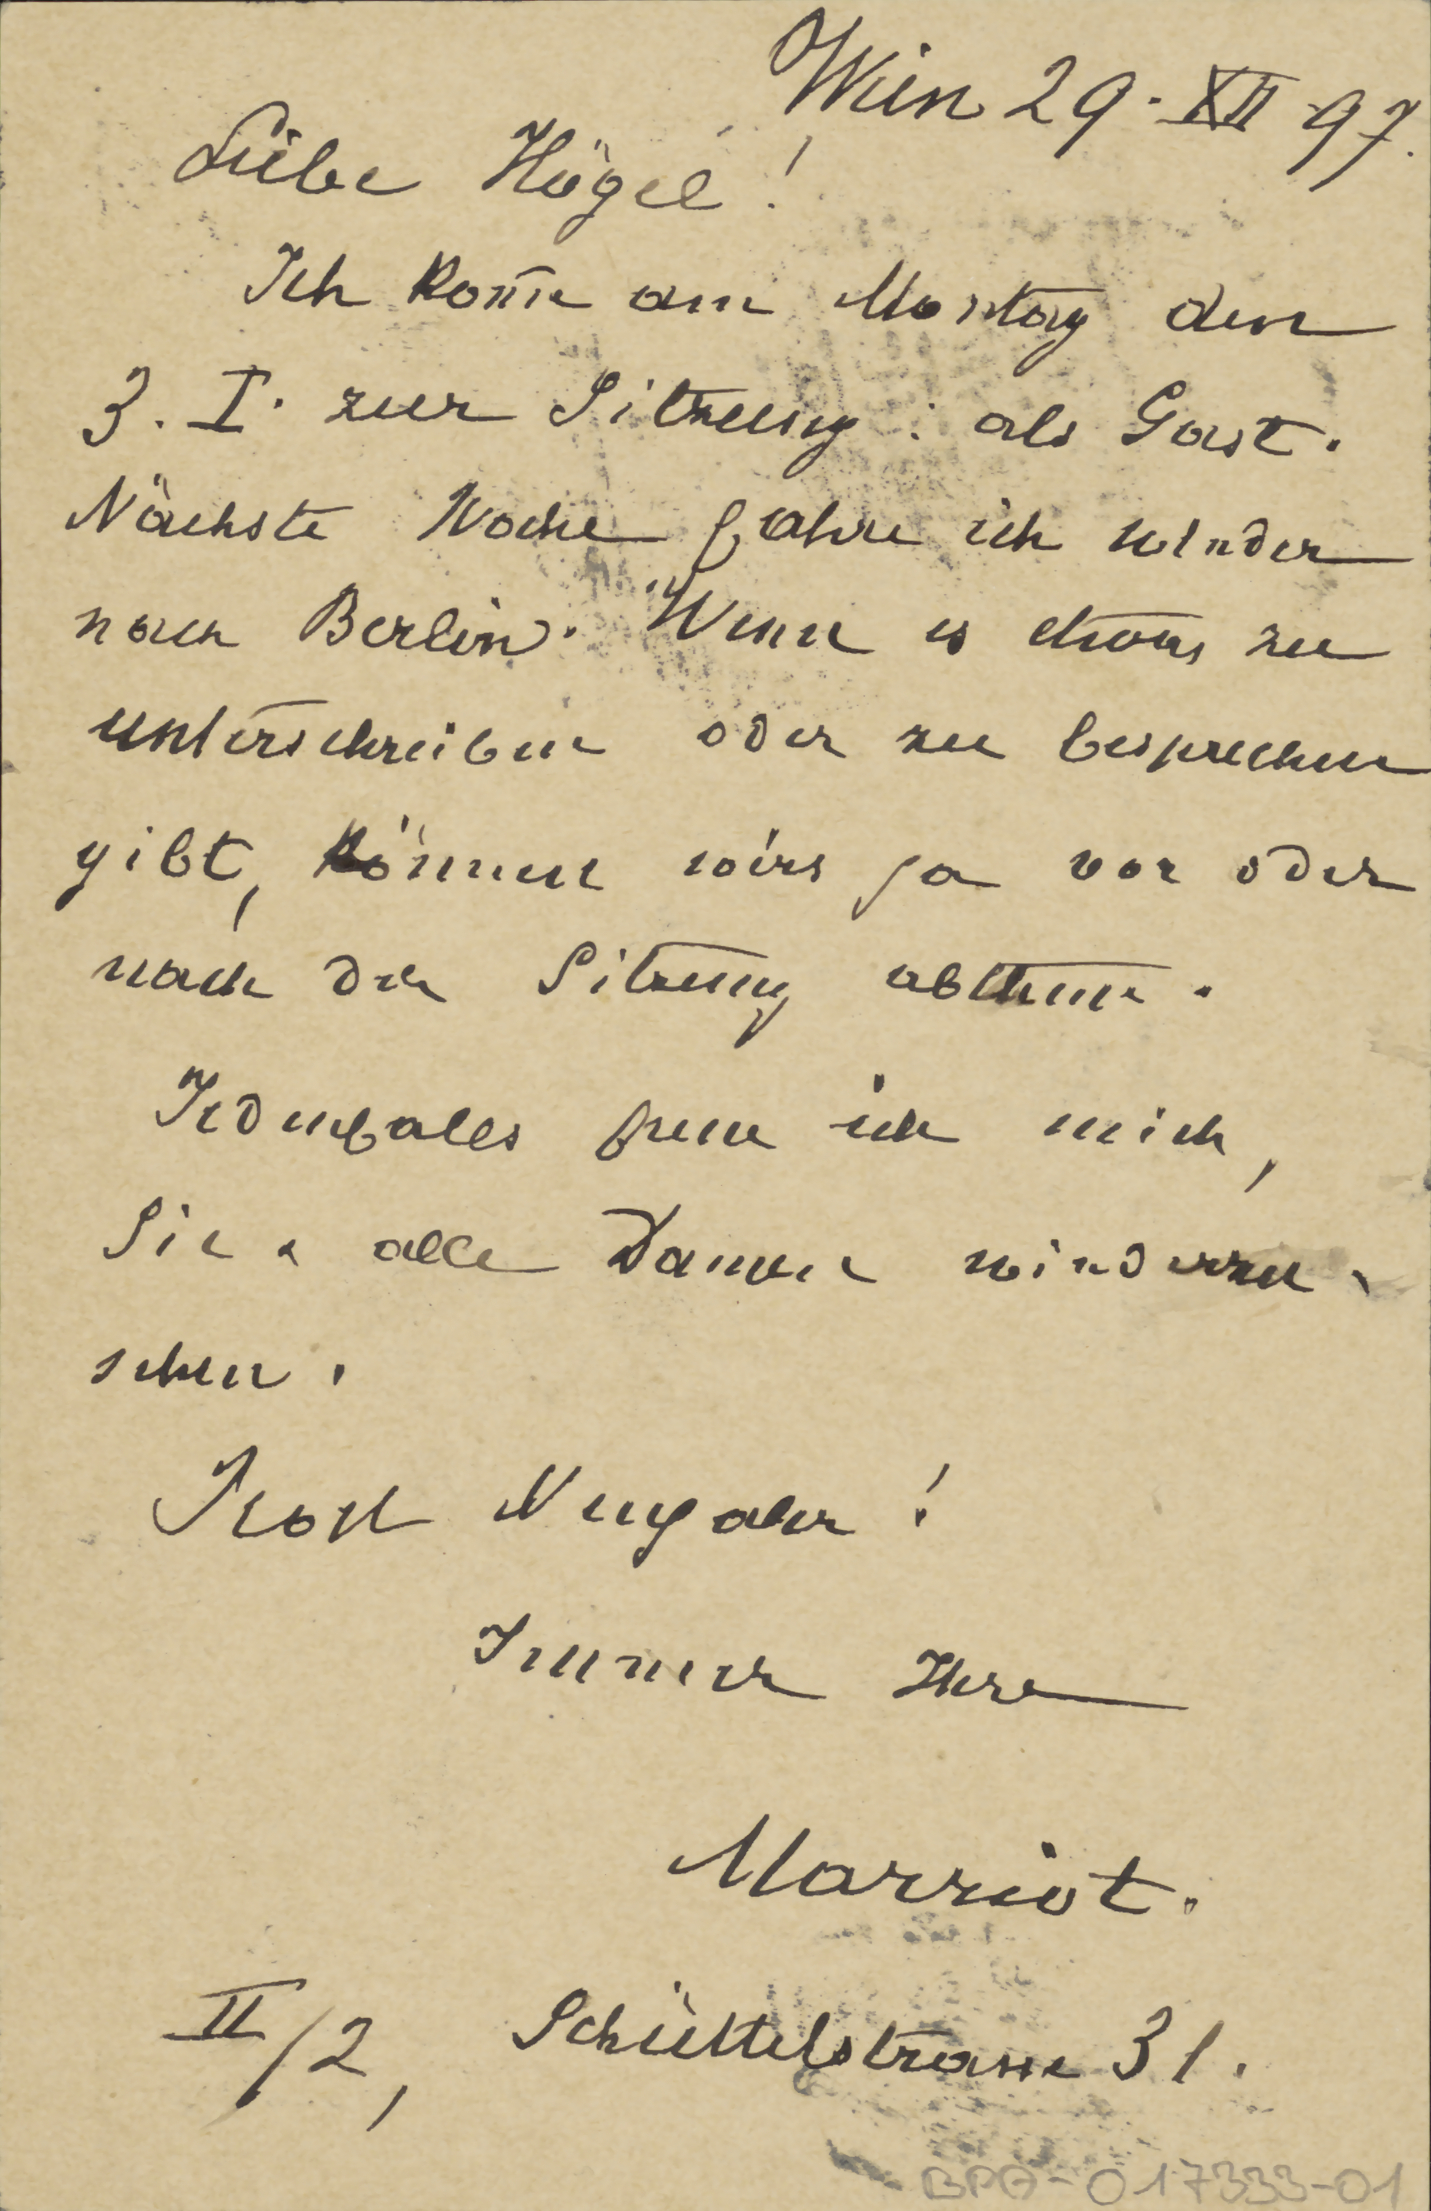 Wien 29. XII 97.
Liebe Högel!
Ich kom̅e am Montag den
3. I. zur Sitzung: als Gast.
Nächste Woche fahre ich wieder
nach Berlin. Wenn es etwas zu
unterschreiben oder zu besprechen
gibt, können wirs ja vor oder
nach der Sitzung abthun.
Jedenfalls freue ich mich,
Sie & alle Damen wiederzu-
sehen.
Prosit Neujahr!
Immer Ihre
Marriot.
II/2, Schüttelstrasse 31.
BPA-017333-01